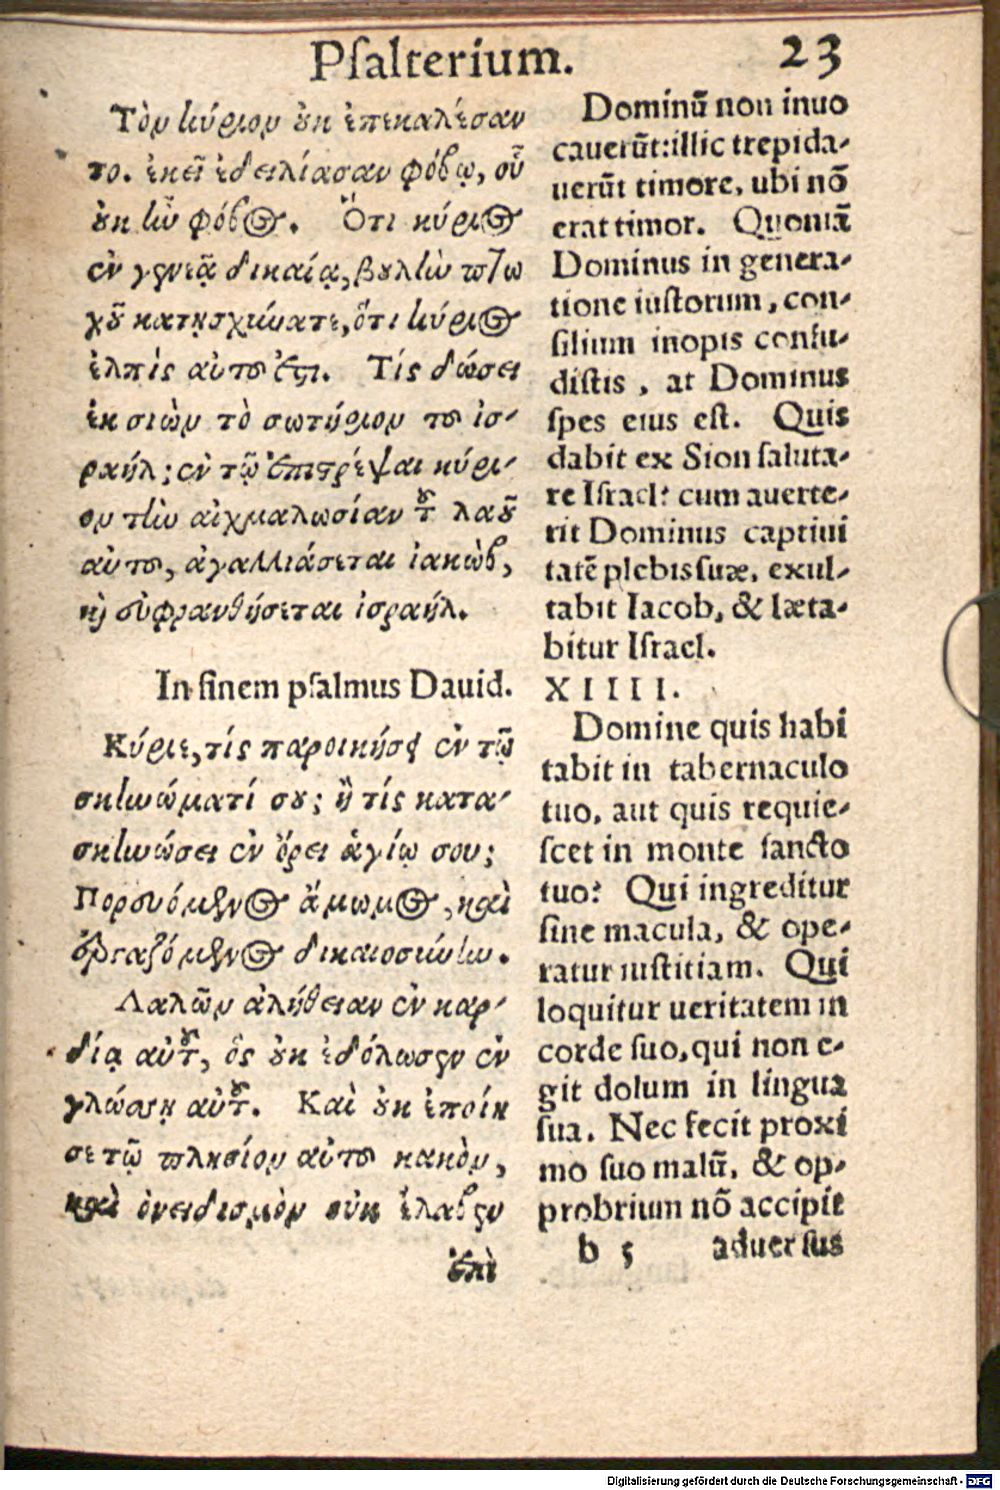 Psalterium. 23
Τὸν κύριον ȣκ ἐπεκαλέσαν
το. ἐκεῖ ἐδειλίασαν φόβῳ, οὗ
ȣκ ἦν φόβος. Ὅτι κύριος
ἐν γενεᾷ δικαίᾳ, βȣλὴν πτω
χȣ͂ κατῃσχύνατε, ὅτι κύριος
ἐλπὶς αὐτοῦ ἐστι. Τίς δώσει
ἐκ σιὼν τὸ σωτήριον τοῦ ἰσ-
ραήλ; ἐν τῷ ἐπιστρέψαι κύρι-
ον τὴν αἰχμαλωσίαν τȣ͂ λαȣ͂
αὐτοῦ, ἀγαλλιάσεται ἰακὼβ,
κ̀ εὐφρανθήσεται ἰσραήλ.
In finem psalmus Dauid.
Κύριε, τίς παροικήσει ἐν τῷ
σκηνώματί σȣ; ἢ τίς κατα-
σκηνώσει ἐν ὄρει ἁγίῳ σου;
Πορευόμενος ἄμωμος, καὶ
ἐργαζόμενος δικαιοσύνην.
Λαλῶν ἀλήθειαν ἐν καρ-
δίᾳ αὐτȣ͂, ὃς ȣκ ἐδόλωσεν ἐν
γλώσσῃ αὐτȣ͂. Καὶ ȣκ ἐποίη
σε τῷ πλησίον αὐτοῦ κακὸν,
καὶ ὀνειδισμὸν οὐκ ἔλαβεν
ἐπὶ
Dominũ non inuo
cauerũt: illic trepida-
uerũt timore, ubi nõ
erat timor. Quoniã
Dominus in genera-
tione iustorum, con-
silium inopis confu-
distis, at Dominus
spes eius est. Quis
dabit ex Sion saluta-
re Israel? cum auerte-
rit Dominus captiui
tatẽ plebis suæ, exul-
tabit Iacob, & læta-
bitur Israel.
XIIII.
Domine quis habi
tabit in tabernaculo
tuo, aut quis requie-
scet in monte sancto
tuo? Qui ingreditur
sine macula, & ope-
ratur iustitiam. Qui
loquitur ueritatem in
corde suo, qui non e-
git dolum in lingua
sua. Nec fecit proxi
mo suo malũ, & op-
probrium nõ accipit
b 5 aduersus
Digitalisierung gefördert durch die Deutsche Forschungsgemeinschaft - DFG